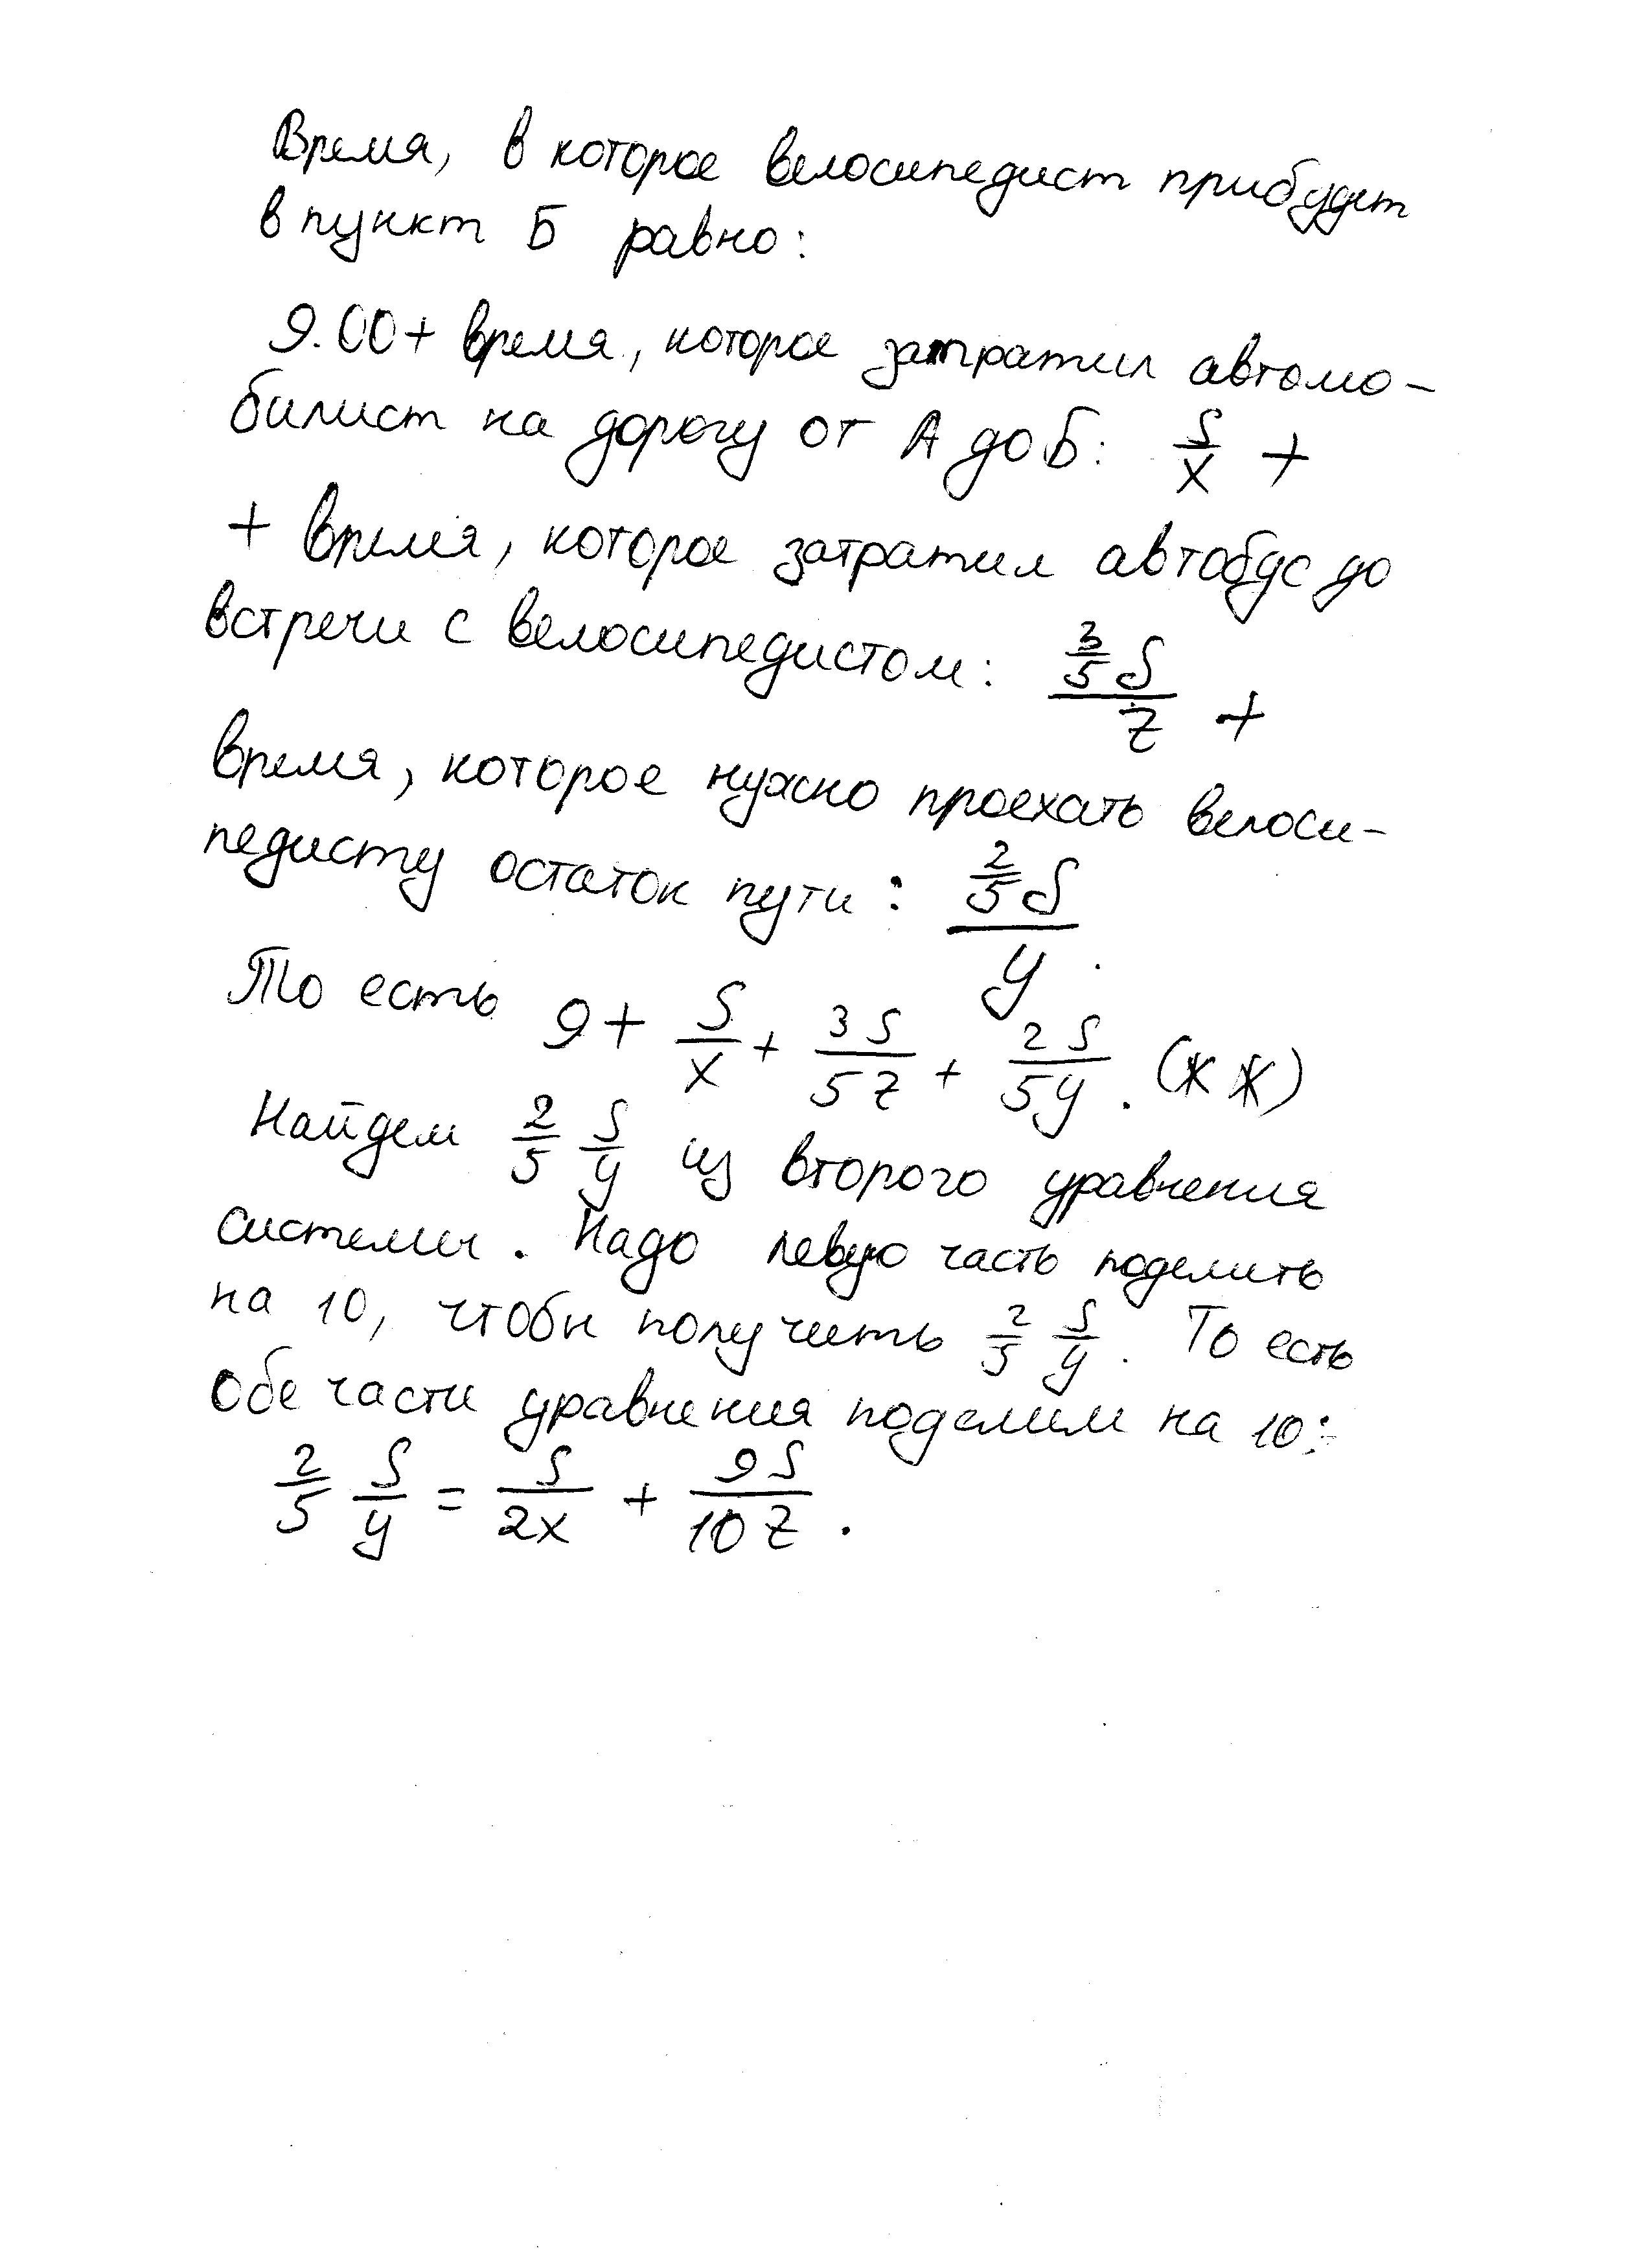 Время, в которое велосипедист прибудет
в пункт Б равно:
9.00+ время, которое затратил автомо-
билист на дорогу от А до Б: S/x +
+ время, которое затратил автобус до
встречи с велосипедистом: (3/5 S)/z +
время, которое нужно проехать велоси-
педисту остаток пути: (2/5 S)/y.
То есть 9 + S/x + 3S/5z + 2S/5y. (**)
Найдем 2/5 S/y из второго уравнения
системы. Надо левую часть поделить
на 10, чтобы получить 2/5 S/y. То есть
обе части уравнения поделим на 10:
2/5 S/y = S/2x + 9S/10z.